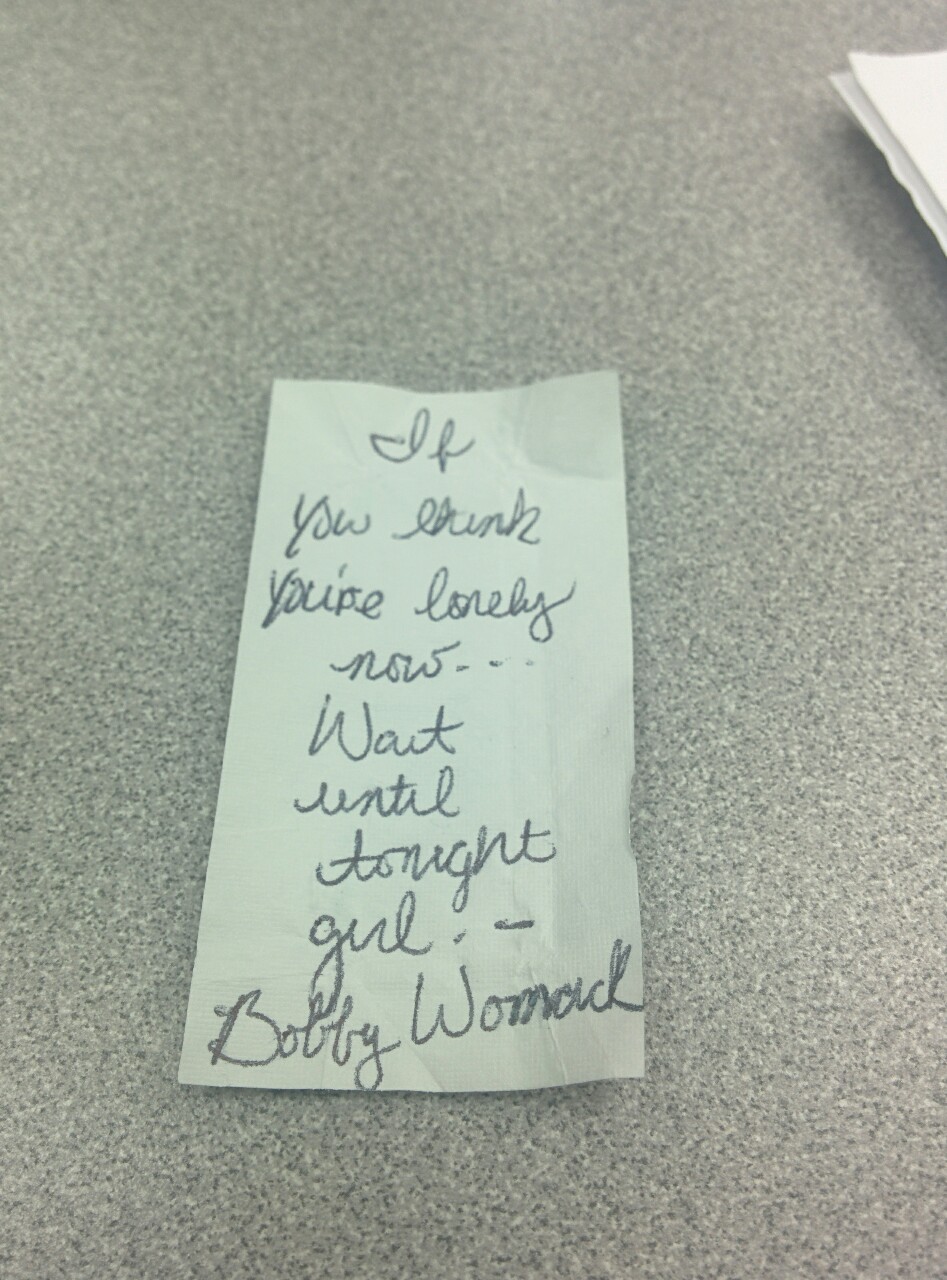 If
You think
You're lonely
now----
Wait
until
tonight
girl. -
Bobby Womack